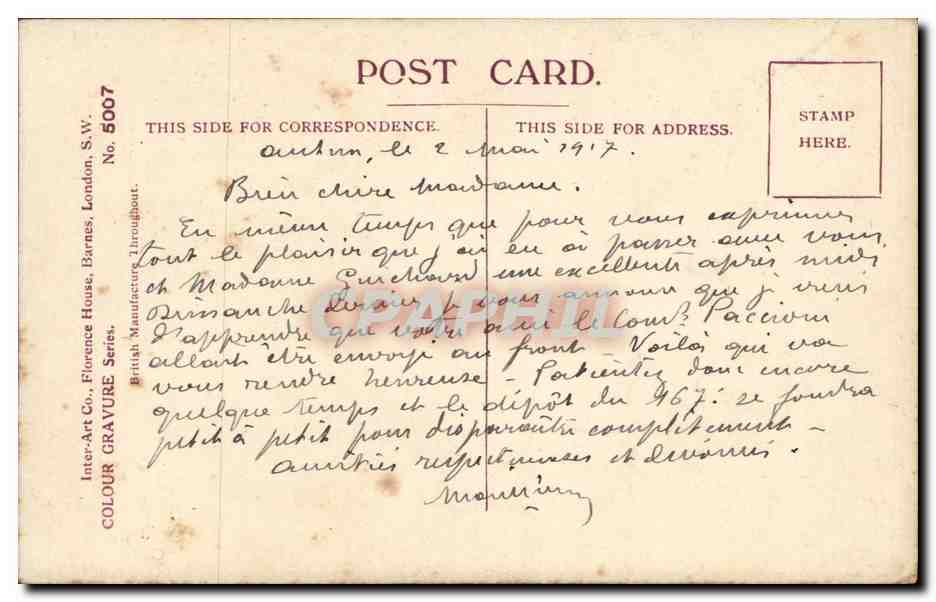 POST CARD.
THIS SIDE FOR CORRESPONDENCE.
THIS SIDE FOR ADDRESS.
STAMP
HERE.
Inter-Art Co., Florence House, Barnes, London, S.W.
COLOUR GRAVURE Series. No. 5007
British Manufacture Throughout.
Autun, le 2 Mai 1917.
Bien chère Madame.
En même temps que pour vous exprimer
tout le plaisir que j'ai eu à passer avec vous
et Madame Guichard une excellente après midi
Dimanche dernier je vous annonce que je viens
d'apprendre que votre ami le Comt
allait être envoyé au front – Voilà qui va
vous rendre heureuse – Patientez donc encore
quelque temps et le dépôt du 167: se fondra
petit à petit pour disparaître complètement –
Amitiés respectueuses et dévouées.
CPAPHIL